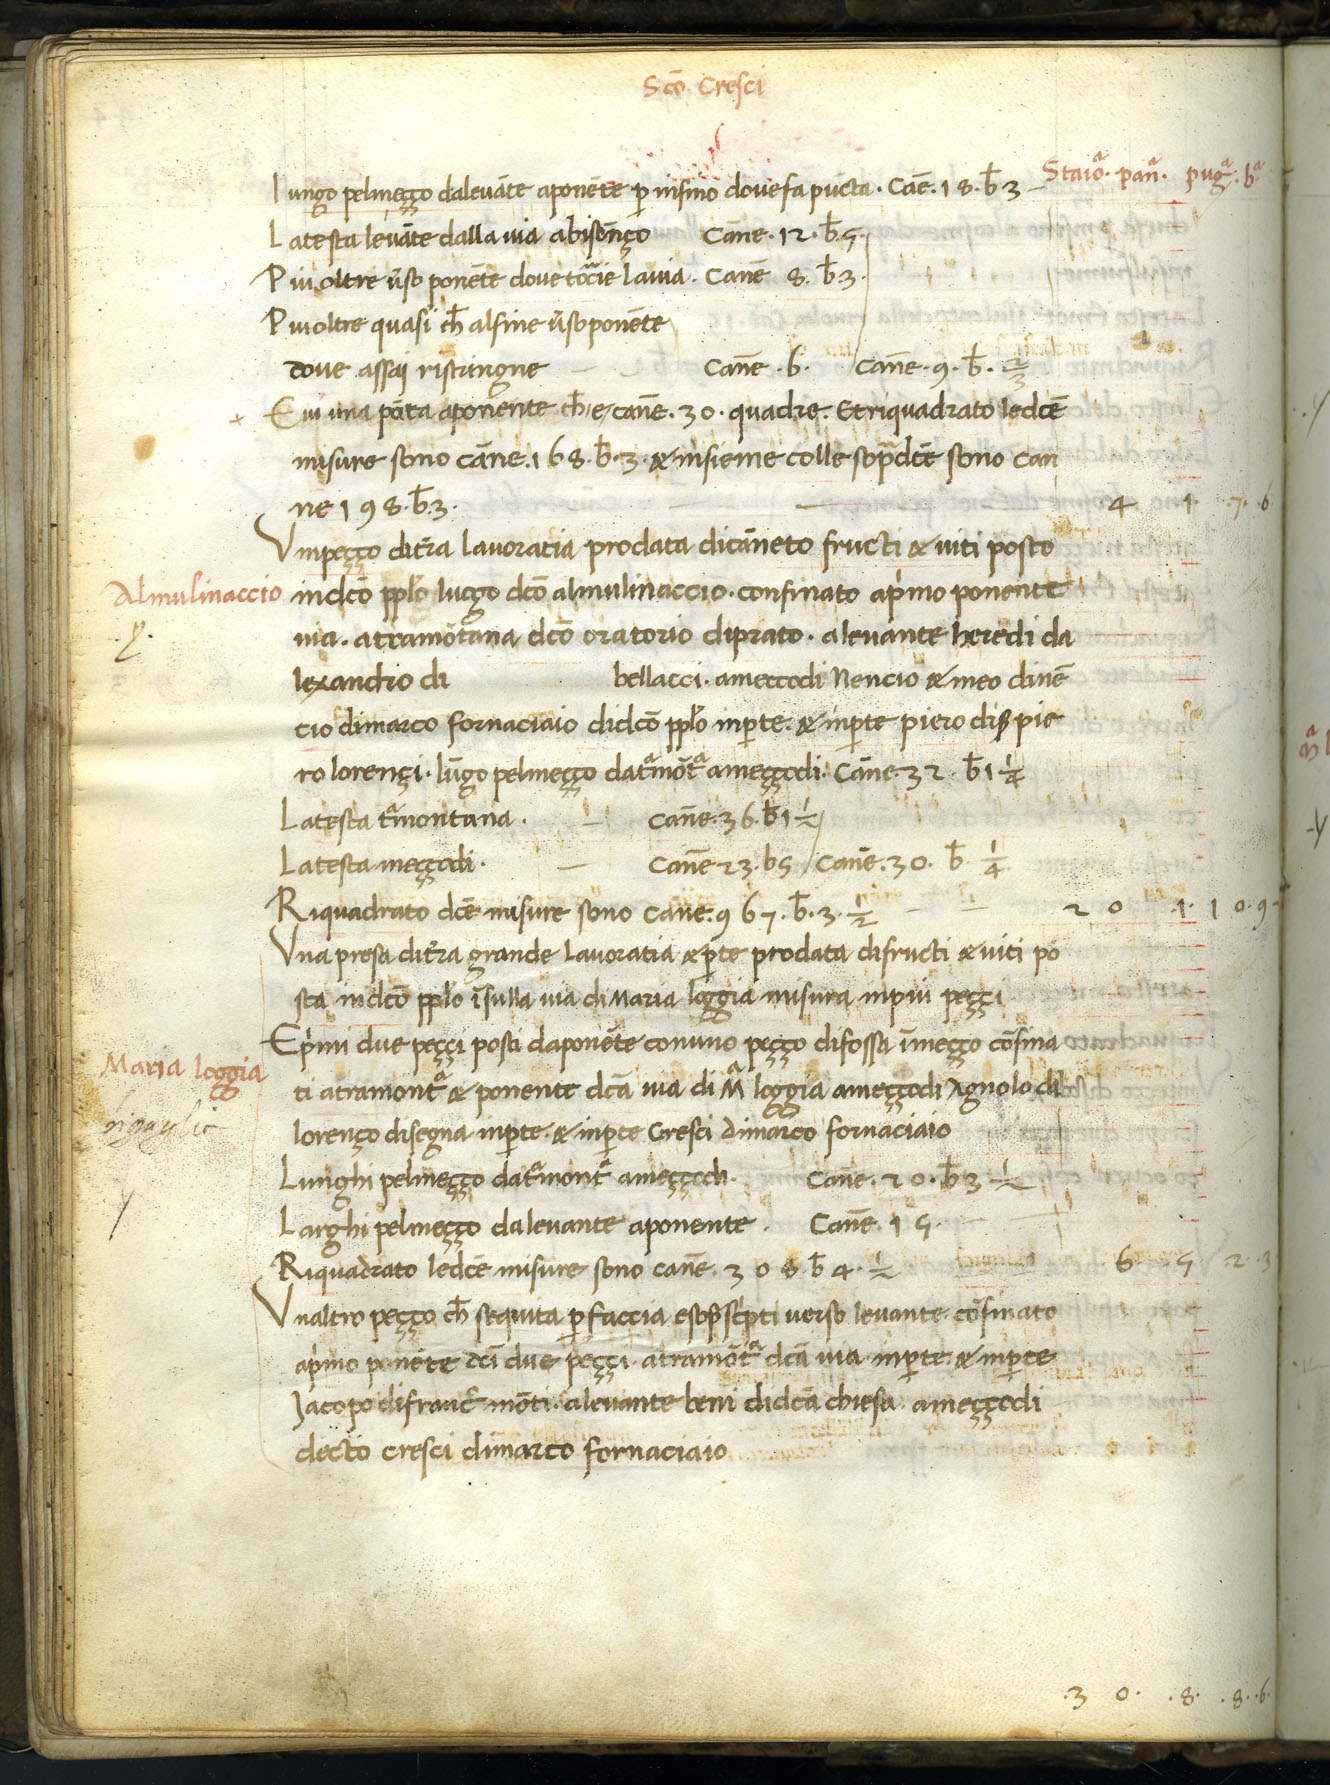 Scō Cresci
Staioᵃ. panᵃ. pugᵃ. bᵃ
Lungo pelmeçço dalevāte aponēte p̄ insino dovefa pūcta. Cāē. 18. b̄ 3
Latesta levāte dalla via abisēnço Canne. 12. b̄. 5.
Piu oltre v̄so ponēte dove tocie lavia. Cannē 8. b̄ 3.
Piuoltre quasi ch̄ alfine v̄soponēte
dove assai ristringne Cannē. 6. Cannē. 9. b̄. 2/3
Evi una pōta aponente ch̄ e canē. 30. quadre. Et riquadrato ledcē
misure sono cāne. 168. b̄. 3. & insieme colle sop̄dcē sono can
ne 198. b̄. 3. 4 1. .7. .6
Vnpeçço dit̄ra lavoratia prodata dicāneto fructi & viti posto
Almulinaccio
indcō pplo luogo dcō almulinaccio. confinato ap̄mo ponente
via. atramōtana dcō oratorio diprato. alevante heredi da
lexandro di bellacci. ameççodi Nencio & meo dinē
cio dimarco fornaciaio didcō pplo inp̄te. & inp̄te piero dis̄ pie
ro lorençi. lūgo pelmeçço dat̄mōtᵃ ameççodi. Cāne. 32. b̄ 1 1/4
Latesta t̄montana. Canne. 36. b̄ 1 1/2
Latesta meççodi. Cannē 23. b 5 Canē. 30. b̄ 1/4
Riquadrato dcē misure sono cane. 967. b̄. 3. 1/2 2 0 .1. 1 0. 9
Vna presa dit̄ra grande lavoratia & p̄te prodata difructi & viti po
sta indcō pplo īsulla via di Maria loggia misura inpiu peççi
Ep̄imi due peççi posti daponēte conuno peçço difossa īmeçço cōfina
Maria loggia
ti atramontᵃ & ponente dcā via di Mᵃ loggia ameççodi Agnolo di
lorenço disegna inp̄te. & inp̄te Cresci dimarco fornaciaio
Lunghi pelmeçço dat̄montᵃ ameççodi. Cannē. 20. b̄ 3 1/2
Larghi pelmeçço dalevante aponente. Cannē. 15.
Riquadrato ledcē misure sono canē. 308. b̄ 4. 1/2 6. .5 .2. 3
Vnaltro peçço ch̄ sequita p̄ faccia esop̄sc̄pti verso levante. cōfinato
ap̄mo ponēte dcī due peççi. atramōtᵃ dcā via inp̄te. & inp̄te
Jacopo difranc̄ mōti. alevante beni didcā chiesa. ameççodi
decto cresci dimarco fornaciaio
.3 0. .8. .8. .6.